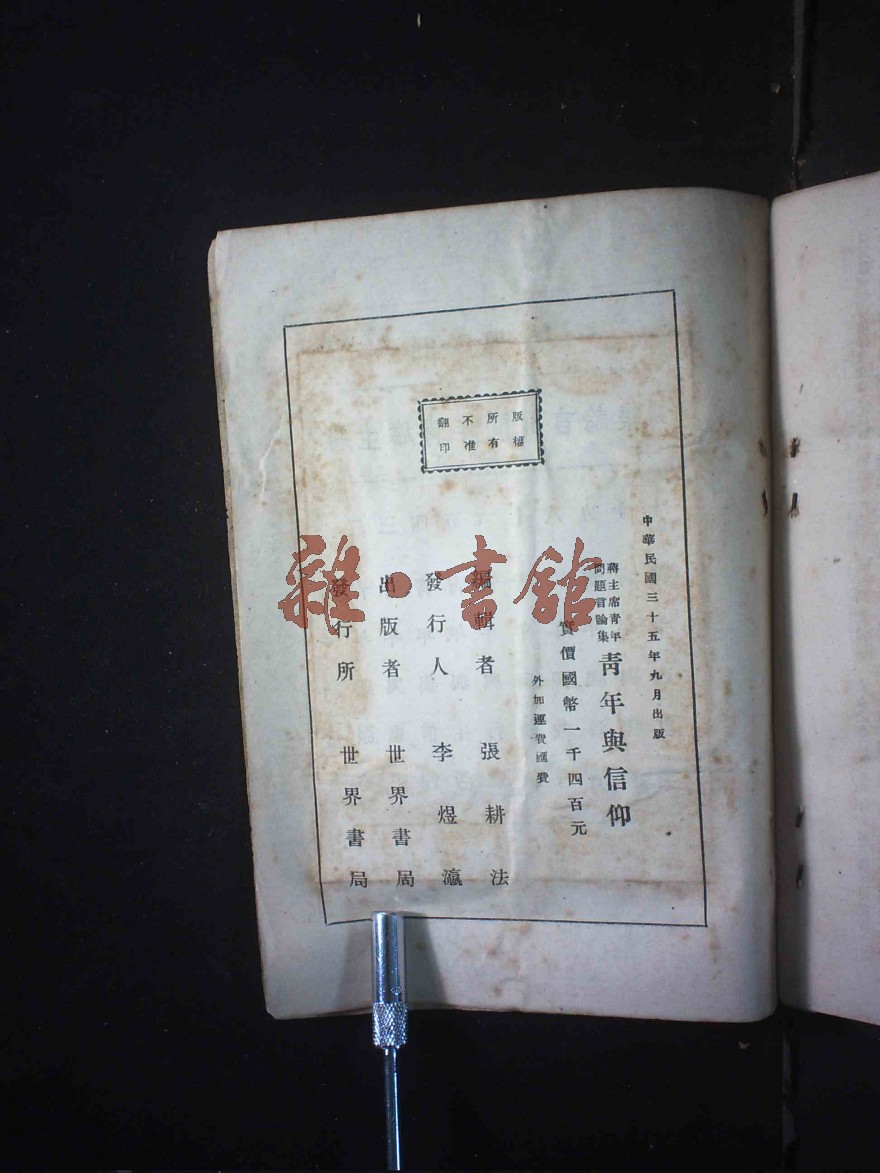 版權
所有
不准
翻印
中華民國三十五年九月出版
蔣主席青年
問題言論集
青年與信仰
實價國幣一千四百元
外加運費匯費
編輯者 張耕法
發行人 李煜瀛
出版者 世界書局
發行所 世界書局
雜·書館